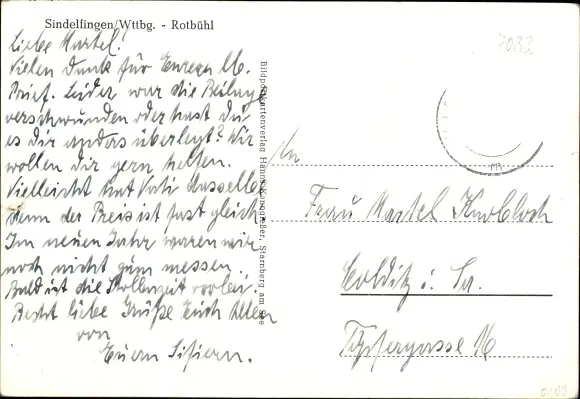 Sindelfingen/Wttbg. - Rotbühl
Liebe Martel!
Vielen Dank für Eueren lb.
Brief. Leider war die Beilage
verschwunden oder hast du
es dir anders überlegt? Wir
wollen dir gern helfen.
Vielleicht hat Vati dasselbe
denn der Preis ist fast gleich.
Im neuen Jahr waren wir
noch nicht zum messen.
Bald ist die Stollenzeit vorbei.
Recht liebe Grüße Euch Allen
von
Euern
Bildpostkartenverlag Hanns Starnberg am See
7032
An
Frau Martel Knobloch
Colditz i. Sa.
Töpfergasse 16